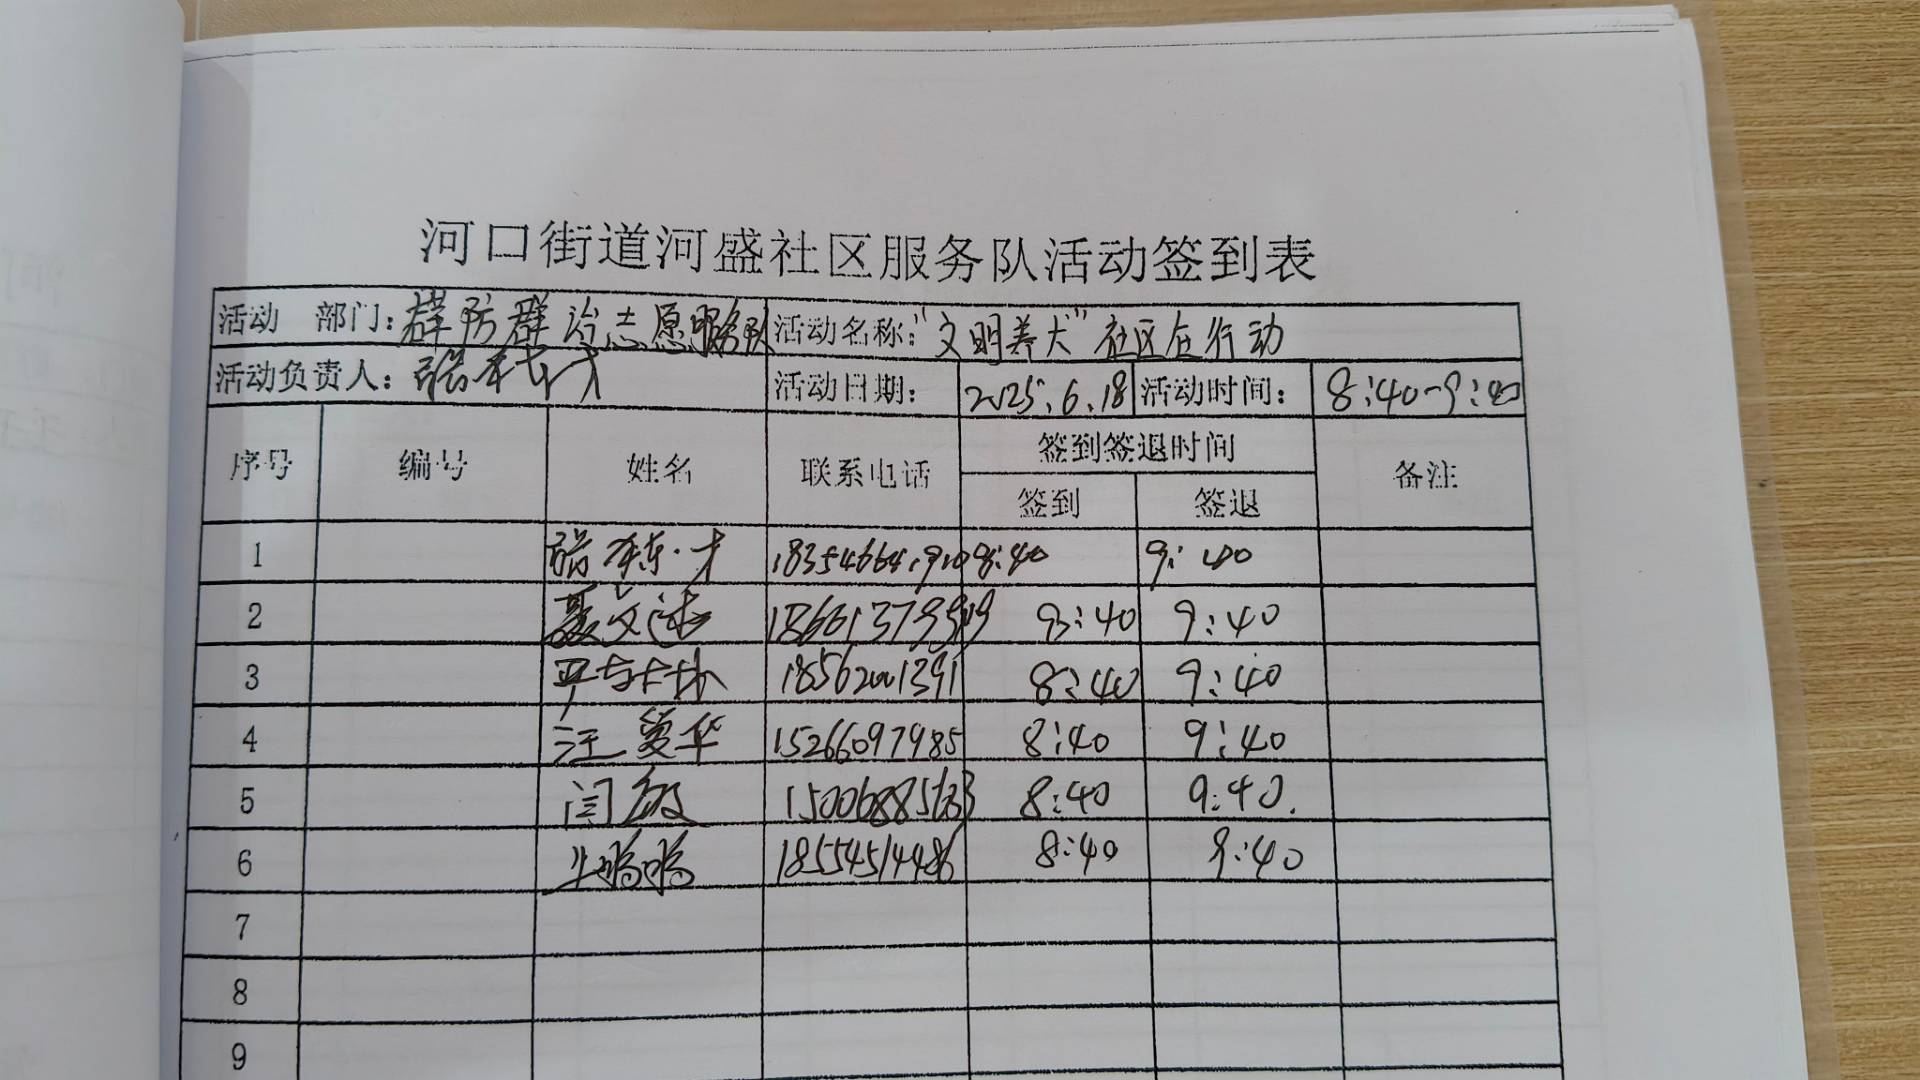 河口街道河盛社区服务队活动签到表
活动 部门：群防群治志愿服务队 活动名称："文明养犬"社区在行动
活动负责人： 活动日期： 2025.6.18 活动时间： 8:40-9:40
序号 编号 姓名 联系电话 签到签退时间 备注
签到 签退
1 8:40 9:40
2 聂文 9:40
3 18562001391 8:40 9:40
4 汪爱华 15266097985 8:40 9:40
5 闫敏 8:40 9:40.
6 18554514486 8:40 9:40
7
8
9